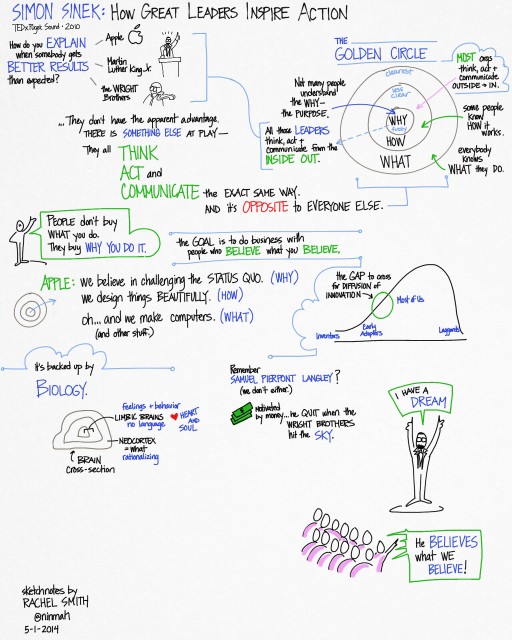 SIMON SINEK: HOW GREAT LEADERS INSPIRE ACTION
TEDxPuget Sound • 2010
How do you EXPLAIN
when somebody gets
BETTER RESULTS
than expected?
Apple
Martin
Luther King Jr.
the WRIGHT
Brothers
... They don't have the apparent advantage.
THERE IS SOMETHING ELSE AT PLAY—
They all THINK
ACT and
COMMUNICATE the EXACT SAME WAY.
AND it's OPPOSITE to EVERYONE ELSE.
THE
GOLDEN CIRCLE
MOST orgs
think, act +
communicate
OUTSIDE → IN.
Not many people
understand
the WHY—
the PURPOSE.
clearest
less
clear
WHY
fuzzy
HOW
WHAT
some people
know
HOW it
works.
everybody
knows
WHAT they DO.
All those LEADERS
think, act +
communicate from the
INSIDE OUT.
PEOPLE don't buy
WHAT you do.
They buy WHY YOU DO IT.
the GOAL is to do business with
people who BELIEVE what you BELIEVE.
APPLE: we believe in challenging the STATUS QUO. (WHY)
we design things BEAUTIFULLY. (HOW)
oh... and we make computers. (WHAT)
(and other stuff.)
the GAP to cross
for DIFFUSION of
INNOVATION
Most of Us
Inventors
Early
Adopters
Laggards
it's backed up by
BIOLOGY.
feelings + behavior
LIMBIC BRAINS
no language
HEART
AND
SOUL
NEOCORTEX
= what
rationalizing
BRAIN
cross-section
Remember
SAMUEL PIERPONT LANGLEY?
(we don't either.)
Motivated
by money... he QUIT when the
WRIGHT BROTHERS
hit the SKY.
I HAVE A
DREAM
He BELIEVES
what WE
BELIEVE!
sketchnotes by
RACHEL SMITH
@ninmah
5-1-2014